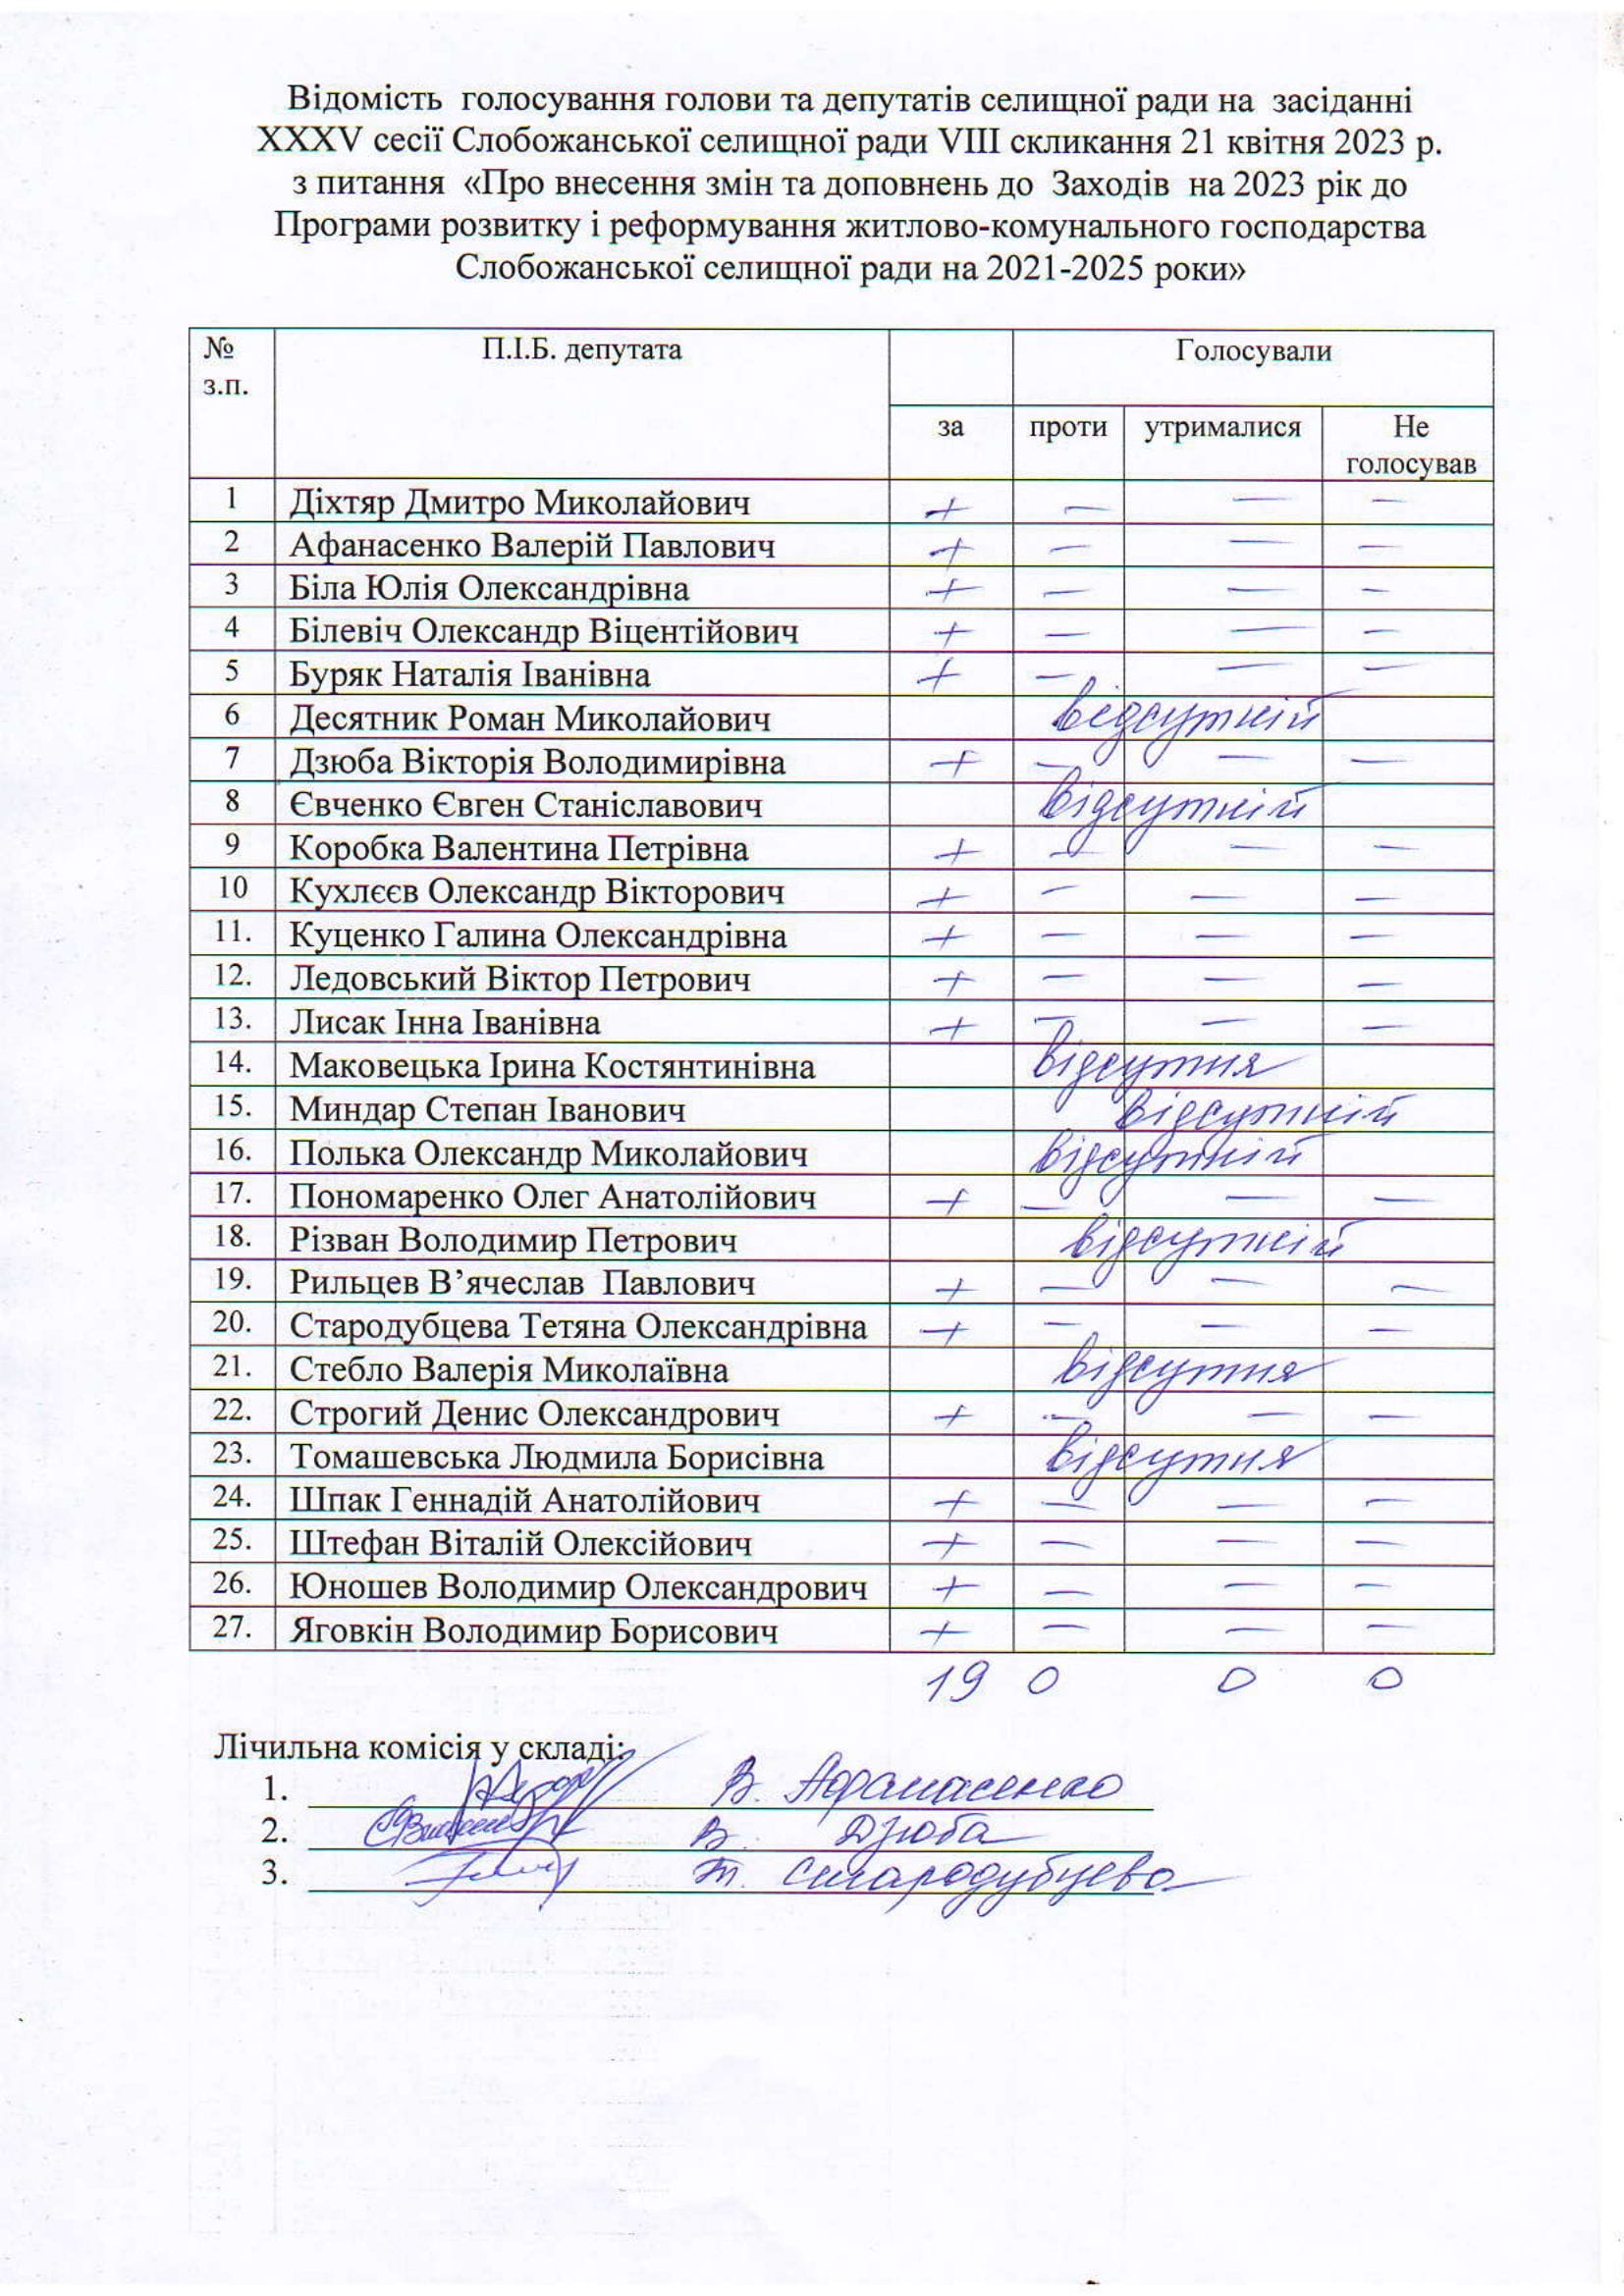 Відомість голосування голови та депутатів селищної ради на засіданні
XXXV сесії Слобожанської селищної ради VIII скликання 21 квітня 2023 р.
з питання «Про внесення змін та доповнень до Заходів на 2023 рік до
Програми розвитку і реформування житлово-комунального господарства
Слобожанської селищної ради на 2021-2025 роки»
№ з.п. П.І.Б. депутата Голосували
за проти утрималися Не голосував
1 Діхтяр Дмитро Миколайович + — — —
2 Афанасенко Валерій Павлович + — — —
3 Біла Юлія Олександрівна + — — —
4 Білевіч Олександр Віцентійович + — — —
5 Буряк Наталія Іванівна + — — —
6 Десятник Роман Миколайович відсутній
7 Дзюба Вікторія Володимирівна + — — —
8 Євченко Євген Станіславович відсутній
9 Коробка Валентина Петрівна + — — —
10 Кухлєєв Олександр Вікторович + — — —
11. Куценко Галина Олександрівна + — — —
12. Ледовський Віктор Петрович + — — —
13. Лисак Інна Іванівна + — — —
14. Маковецька Ірина Костянтинівна відсутня
15. Миндар Степан Іванович відсутній
16. Полька Олександр Миколайович відсутній
17. Пономаренко Олег Анатолійович + — — —
18. Різван Володимир Петрович відсутній
19. Рильцев В’ячеслав Павлович + — — —
20. Стародубцева Тетяна Олександрівна + — — —
21. Стебло Валерія Миколаївна відсутня
22. Строгий Денис Олександрович + — — —
23. Томашевська Людмила Борисівна відсутня
24. Шпак Геннадій Анатолійович + — — —
25. Штефан Віталій Олексійович + — — —
26. Юношев Володимир Олександрович + — — —
27. Яговкін Володимир Борисович + — — —
19 0 0 0
Лічильна комісія у складі:
1. В. Афанасенко
2. В. Дзюба
3. Т. Стародубцева